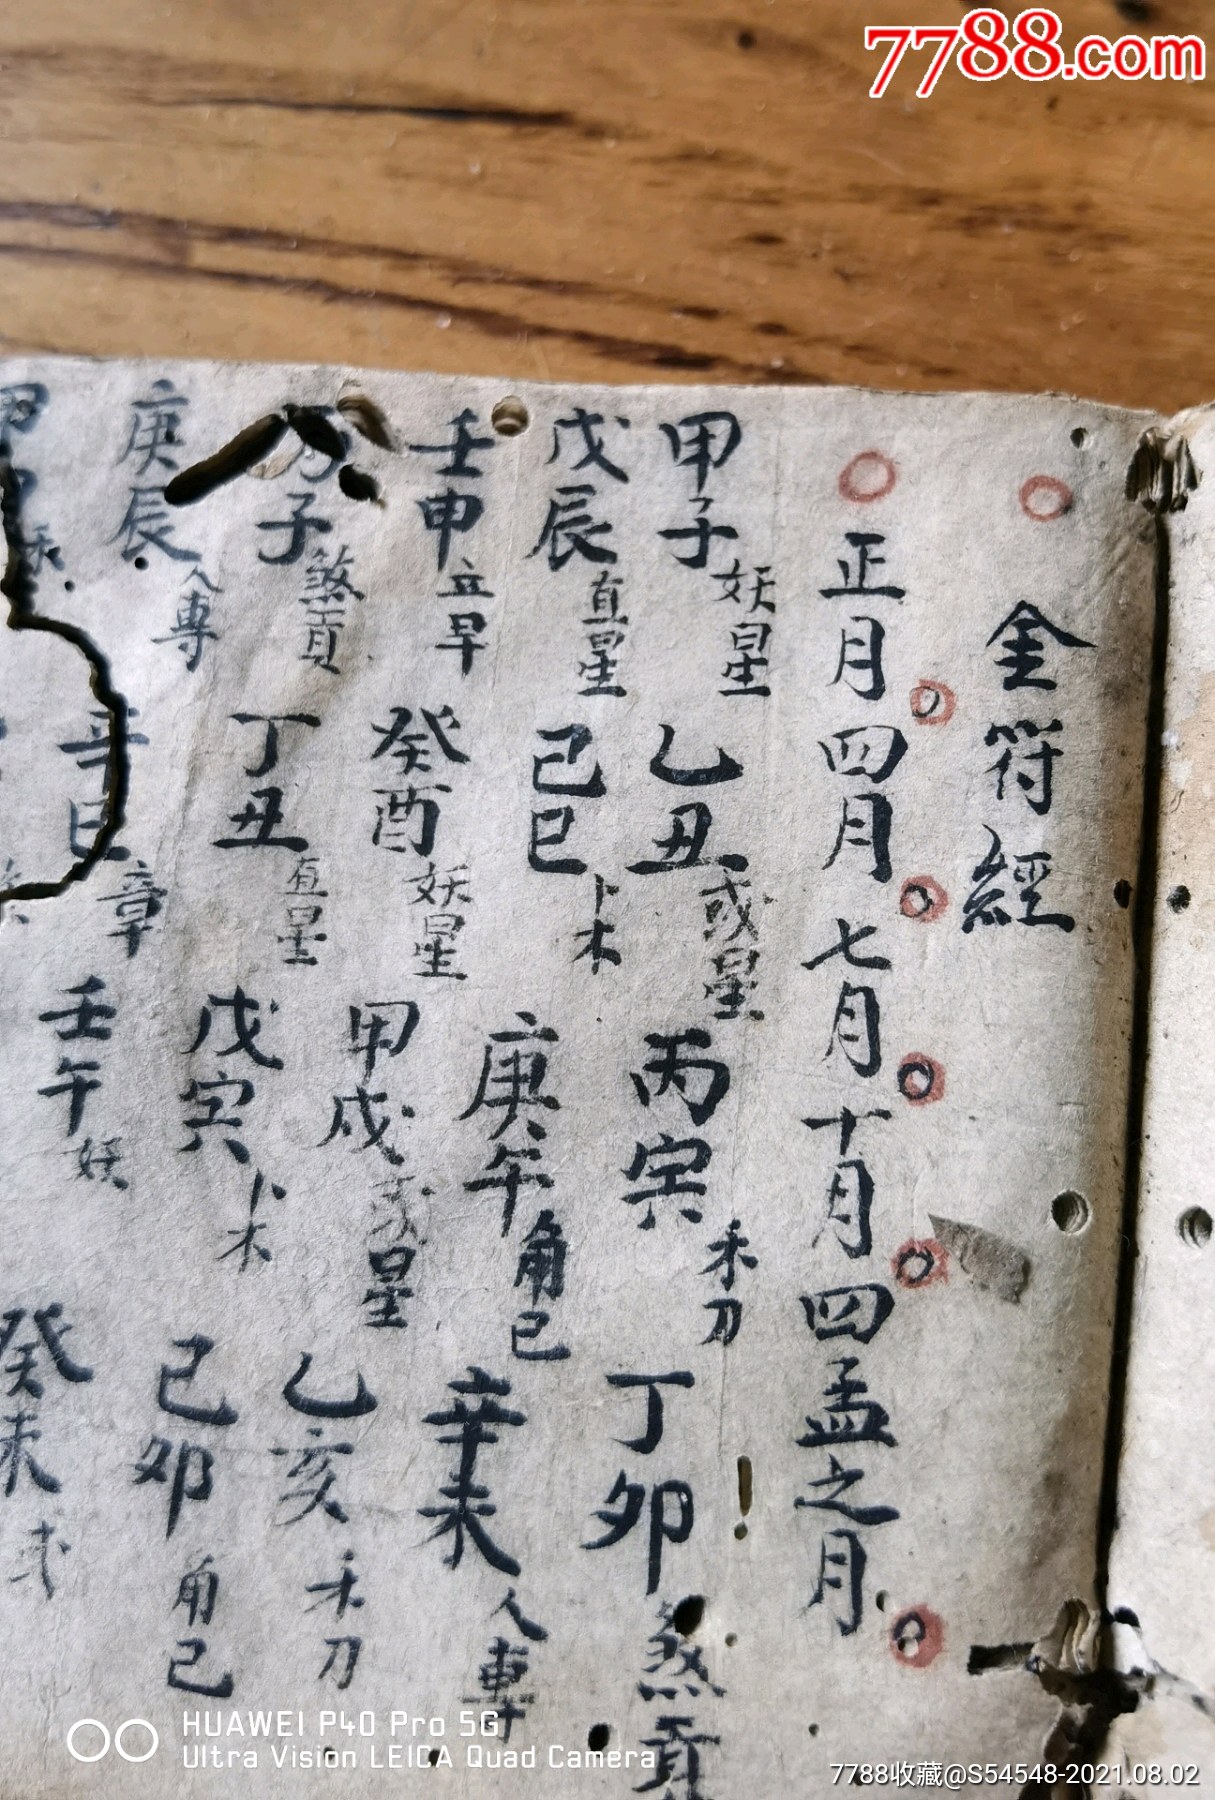 7788.com
金符經
正月四月七月十月四孟之月
甲子妖星 乙丑或星 丙寅禾刀 丁卯煞貢
戊辰直星 己巳卜木 庚午角己 辛未人專
壬申立早 癸酉妖星 甲戌或星 乙亥禾刀
子煞貢 丁丑直星 戊寅卜木 己卯角己
庚辰人專 辛巳章 壬午妖 癸未或
甲申
HUAWEI P40 Pro 5G
Ultra Vision LEICA Quad Camera
7788收藏@S54548-2021.08.02